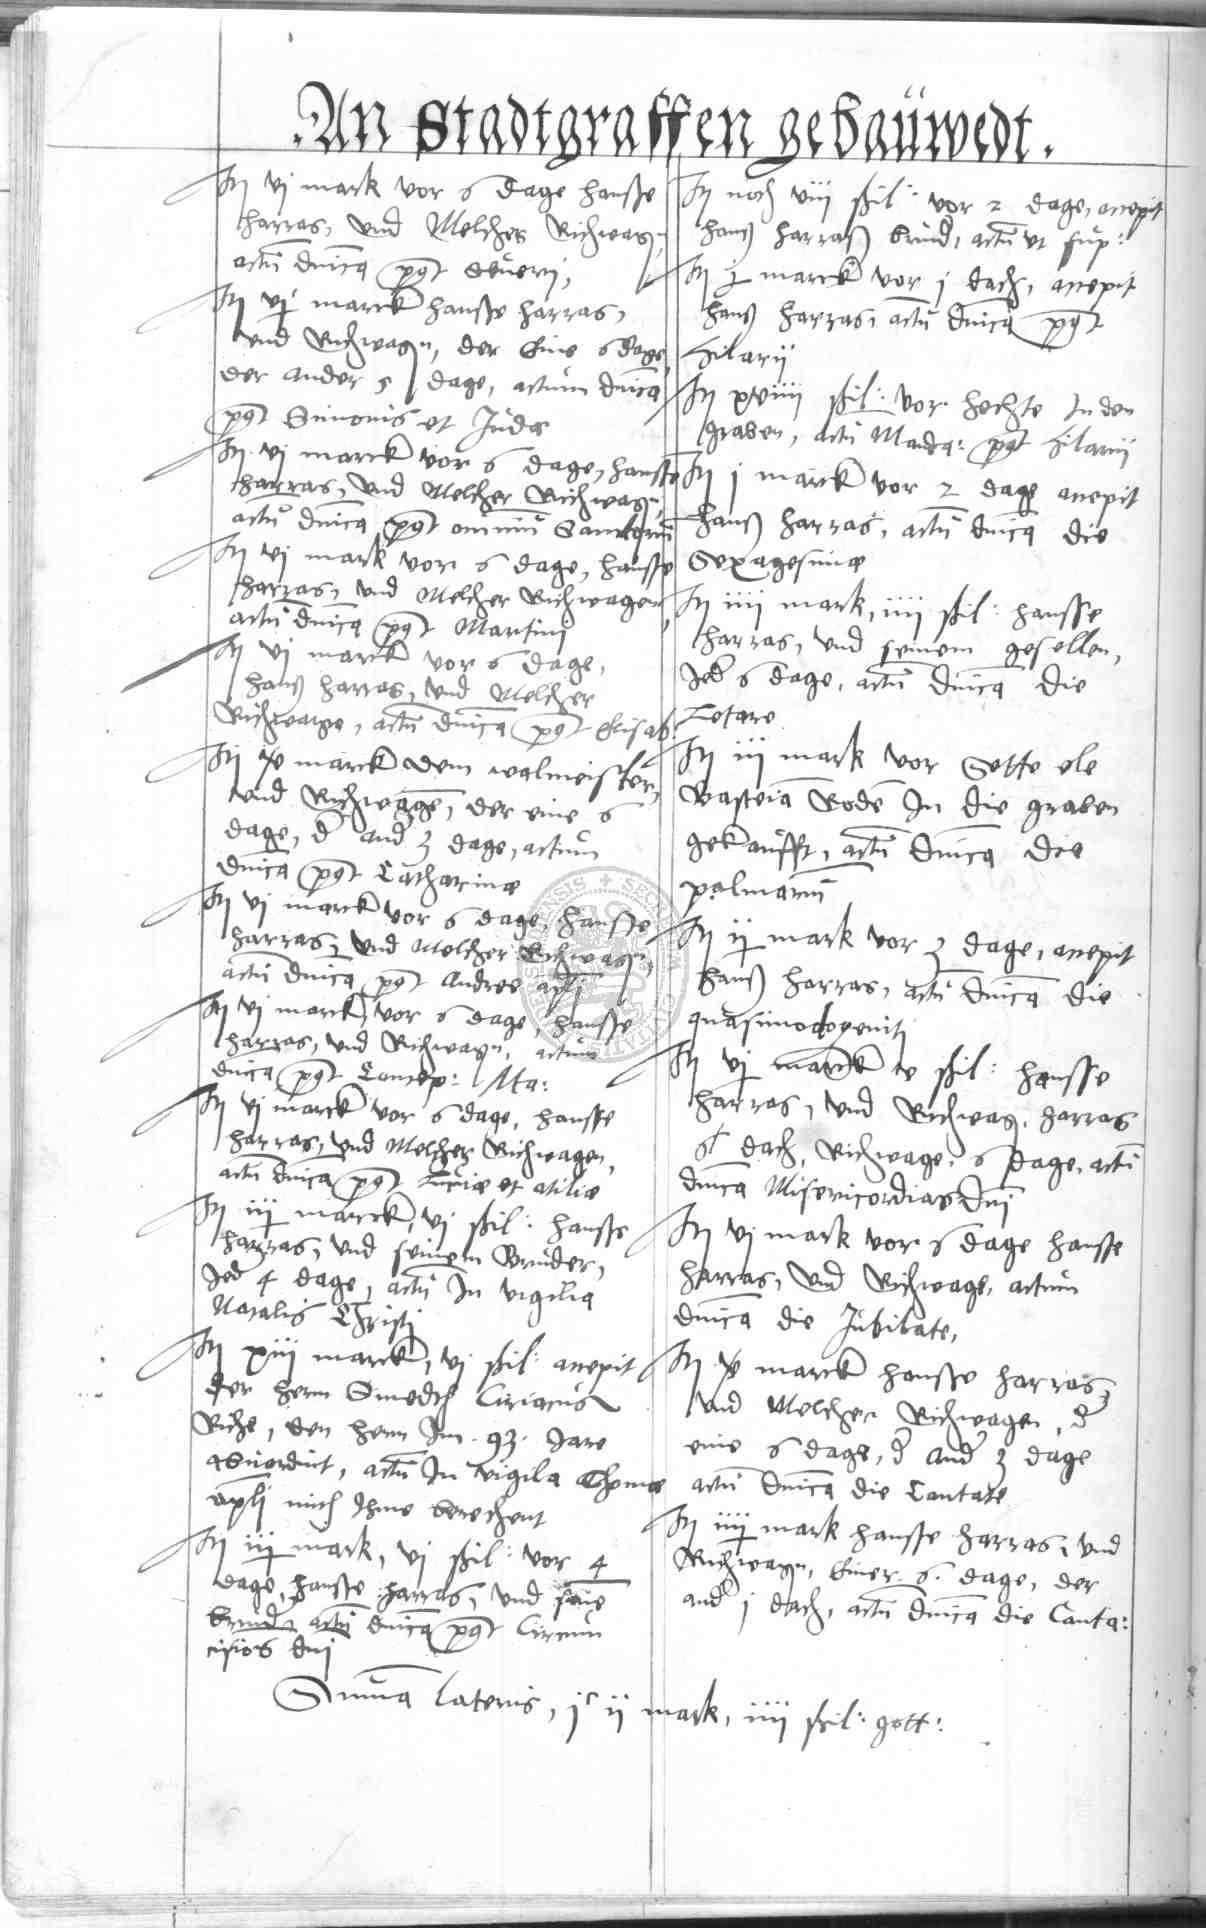 .An Stadtgraffen gebauwedt.
It vj mark vor 6 dage hansse
harras, vnd Melcher Richwagn,
actu dnica post Seueri,
It vj marck hansse harras,
vnd Richwagn, der Eine 6 dage,
der ander 5 dage, actum dnica
post Simonis et Judæ
It vj marck vor 6 dage, hansse
harras, vnd Melcher Richwagn,
actu dnica post omniu Sanctoru
It vj mark vor 6 dage, hansse
harras, vnd Melcher Richwagen,
actu dnica post Martini
It vj marck vor 6 dage,
hans harras, vnd Melcher
Richwage, actu dnica post Elisab:
It v marck dem walmeister,
vnd Richwage, der eine 6
dage, d and 3 dage, actum
dnica post Catharinæ
It vj marck vor 6 dage, hansse
harras, vnd Melcher Richwagn,
actu dnica post Andree apli
It vj marck, vor 6 dage, hansse
harras, vnd Richwagn, actum
dnica post Concep: Ma:
It vj marck vor 6 dage, hansse
harras, vnd Melcher Richwagen,
actu dnica post Luciæ et otiliæ
It iij marck, vj ßil: hansse
harras, vnd seinem Bruder,
Jed 4 dage, actu In vigilia
Natalis Christi
It xiij marck, vj ßil: accepit
der herrn Ciriacus
Riche, den herrn Im .93. Jare
actu In vigila Thomæ
apli mich Ihme berechent
It iij mark, vj ßil: vor 4
dage, hansse harras, vnd seine
brud, actu dnica post Circum
cisios dni
It noch viij ßil: vor 2 dage, accepit
hans harras brud, actu vt sup:
It j marck vor j dach, accepit
hans harras, actu dnica post
Hilarii
It xviiij ßil: vor hechte In den
graben, actu post Hilarii
It j marck vor 2 dage accepit
hans harras, actu dnica die
Sexagesimæ
It iiij mark, iiij ßil: hansse
harras, vnd seinem gesellen,
Jed 6 dage, actu dnica die
Letare
It iij mark vor
In die graben
gekaufft, actu dnica die
palmaru
It ij mark vor 3 dage, accepit
hans harras, actu dnica die
quasimodogeniti
It vj marck v ßil: hansse
harras, vnd Richwag, harras
dach, Richwage, 6 dage, actu
dnica Misericordias Dni
It vj mark vor 6 dage hansse
harras, vnd Richwage, actum
dnica die Jubilate,
It v marck hansse harras
vnd Melcher Richwagen, d
eine 6 dage, d and 3 dage
actu dnica die Cantate
It iiij mark hansse harras, vnd
Richwagn, Einer .6. dage, der
and j dach, actu dnica die Canta:
Summa lateris, jc ij mark, iiij ßil: gott: